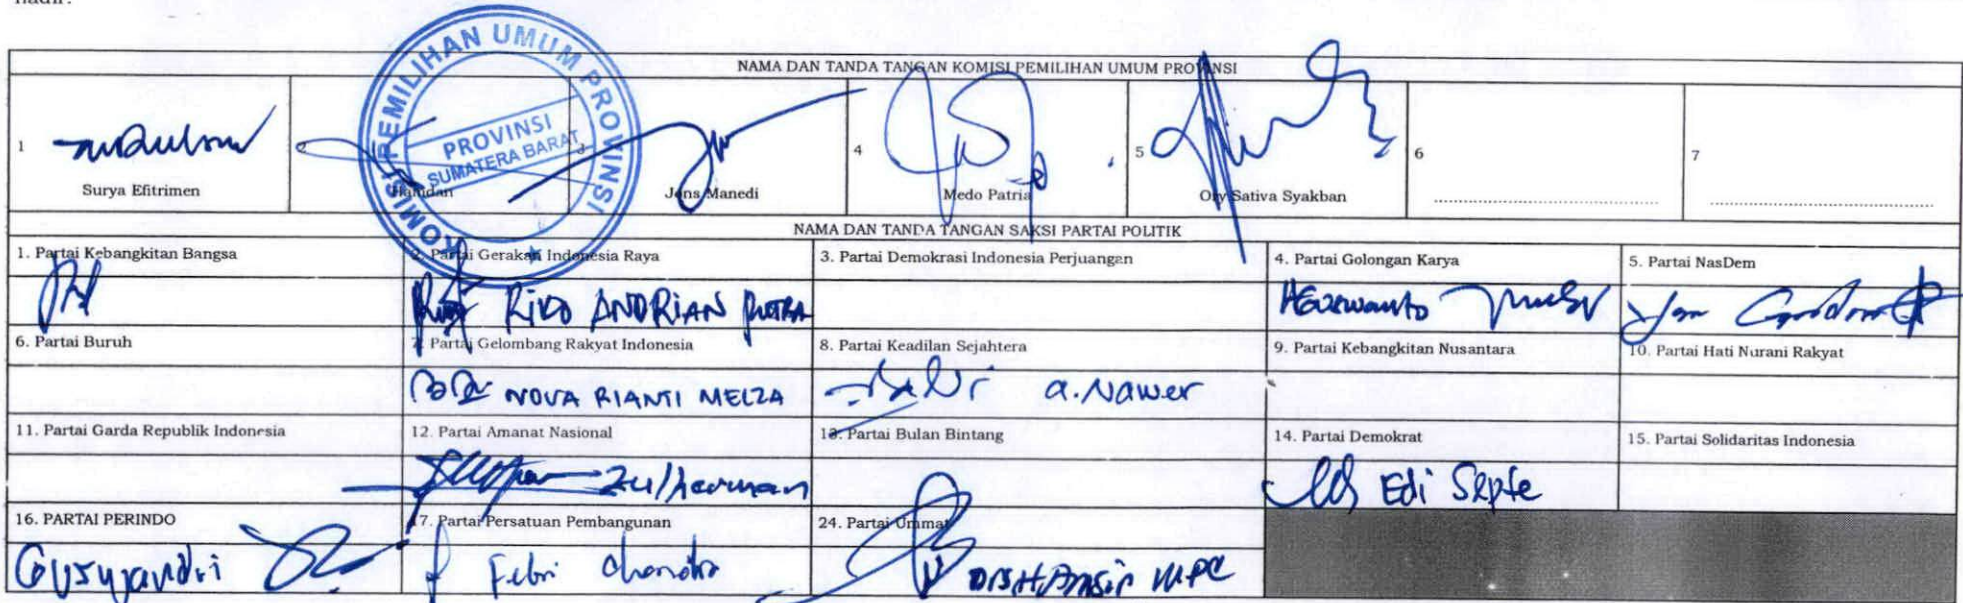 hadir.
NAMA DAN TANDA TANGAN KOMISI PEMILIHAN UMUM PROVINSI
KOMISI PEMILIHAN UMUM PROVINSI
PROVINSI
SUMATERA BARAT
1
2
3
4
5
6
7
Surya Efitrimen
Hamdan
Jons Manedi
Medo Patria
Ory Sativa Syakban
NAMA DAN TANDA TANGAN SAKSI PARTAI POLITIK
1. Partai Kebangkitan Bangsa
2. Partai Gerakan Indonesia Raya
3. Partai Demokrasi Indonesia Perjuangan
4. Partai Golongan Karya
5. Partai NasDem
RIKO ANDRIAN PUTRA
6. Partai Buruh
7. Partai Gelombang Rakyat Indonesia
8. Partai Keadilan Sejahtera
9. Partai Kebangkitan Nusantara
10. Partai Hati Nurani Rakyat
NOVA RIANTI MELZA
a. Nawer
11. Partai Garda Republik Indonesia
12. Partai Amanat Nasional
13. Partai Bulan Bintang
14. Partai Demokrat
15. Partai Solidaritas Indonesia
Zulherman
Edi Septe
16. PARTAI PERINDO
17. Partai Persatuan Pembangunan
24. Partai Ummat
Gusyandri
Febri Chandra